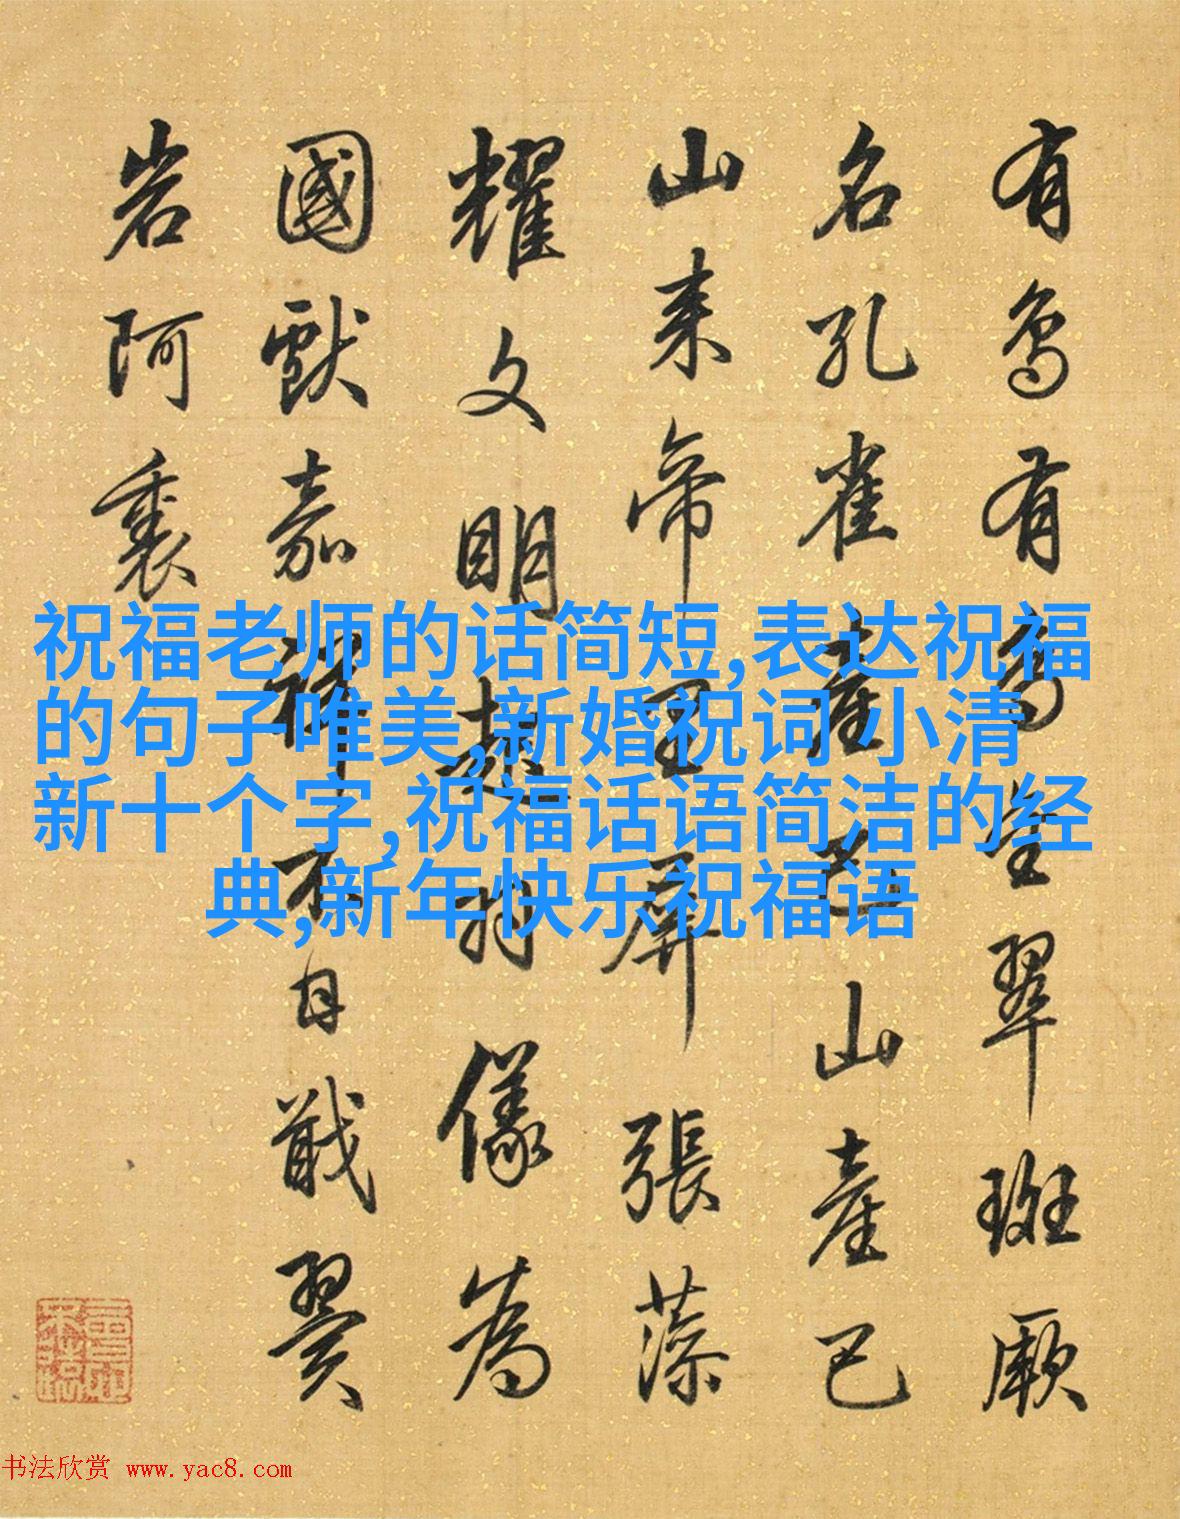 有鳥有鳥金翠斑厥
名孔雀產巴山產巴
山来帝里屏張藻
耀文明羽儀為
國獻嘉祥不日戢翼
岩阿裏
祝福老师的话简短,表达祝福
的句子唯美,新婚祝词 小清
新十个字,祝福话语简洁的经
典,新年快乐祝福语
书法欣赏 www.yac8.com